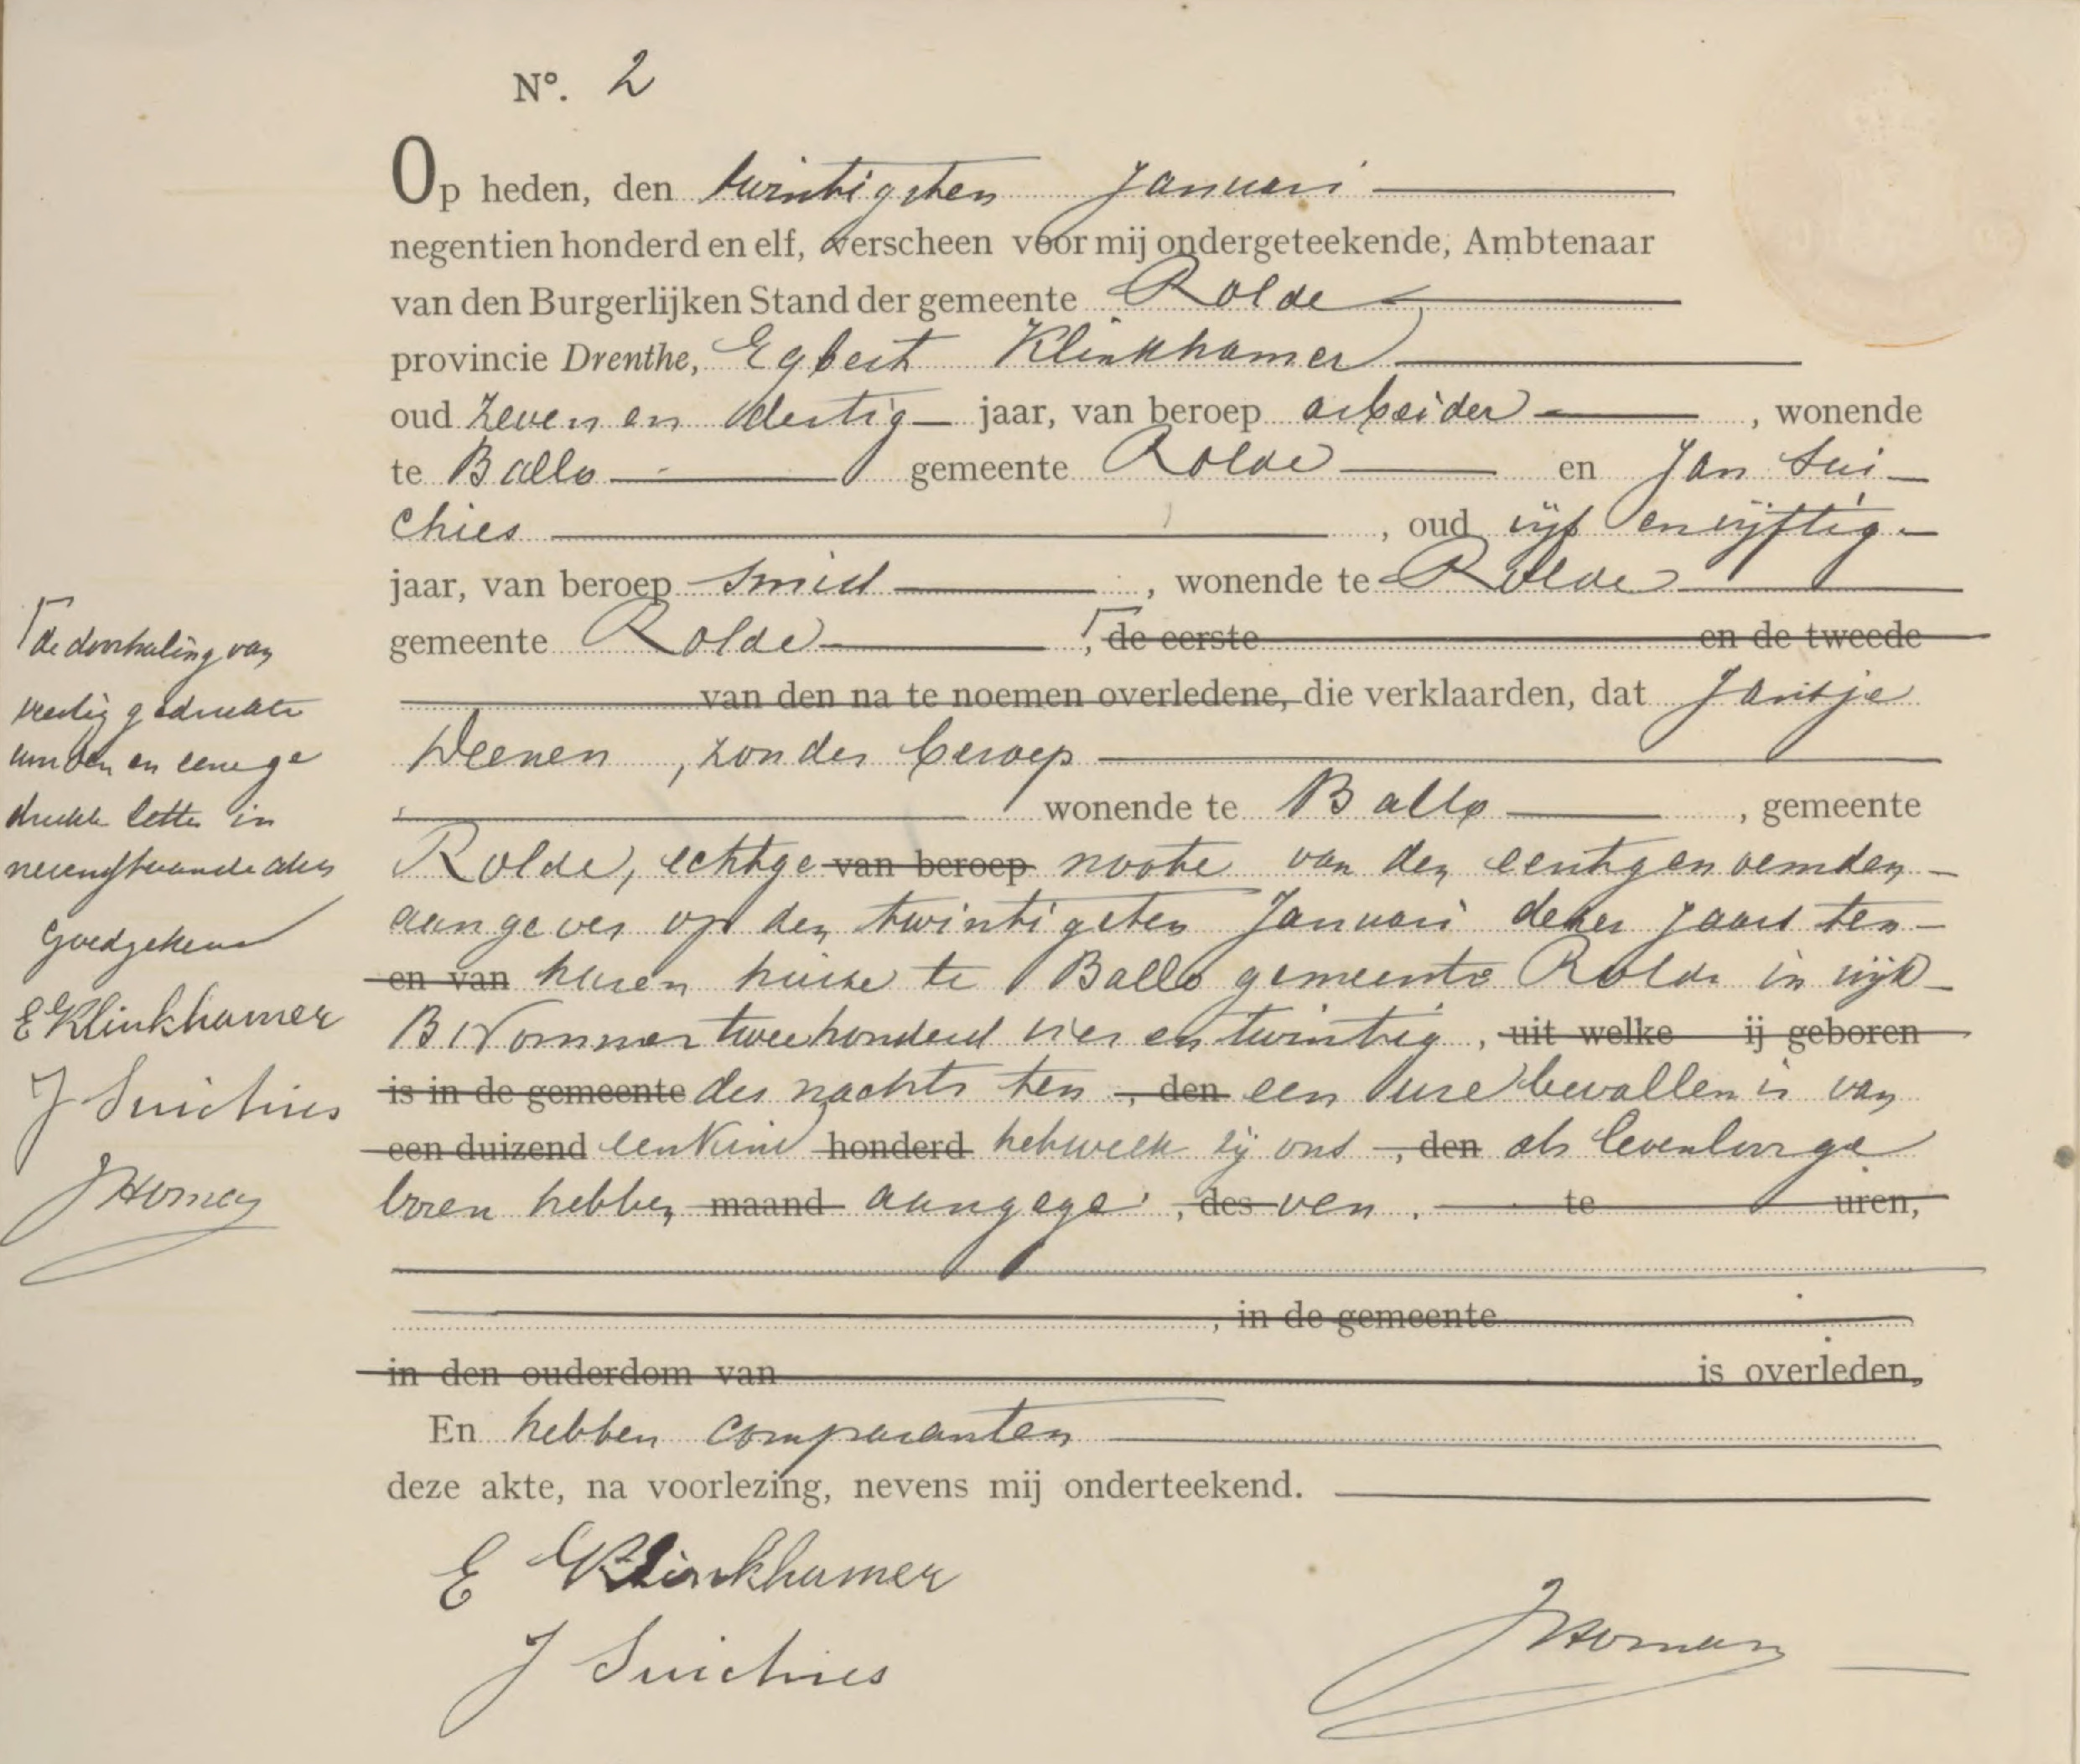 Nº. 2
Op heden, den twintigsten Januari
negentien honderd en elf, verscheen voor mij ondergeteekende, Ambtenaar
van den Burgerlijken Stand der gemeente Rolde
provincie Drenthe, Egbert Klinkhamer
oud zeven en dertig jaar, van beroep arbeider, wonende
te Ballo gemeente Rolde en Jan Sui-
chies, oud vijf en vijftig
jaar, van beroep smid, wonende te Rolde
gemeente Rolde, de eerste en de tweede
van den na te noemen overledene, die verklaarden, dat Jantje
Weenen, zonder beroep
wonende te Ballo, gemeente
Rolde, echtge van beroep noote van den eerstgenoemden
aangever op den twintigsten Januari dezer jaars ten
en van haren huize te Ballo gemeente Rolde in wijk
B Nommer tweehonderd vier en twintig, uit welke ij geboren
is in de gemeente des nachts ten, den een ure bevallen is van
een duizend een kind honderd hetwelk zij ons, den als levenloos ge
boren hebben maand aangege, des ven. te uren,
, in de gemeente
in den ouderdom van is overleden,
En hebben comparanten
deze akte, na voorlezing, nevens mij onderteekend.
E Klinkhamer
J Suichies
JHoman
de doorhaling van
veertig gedrukte
woorden en eene ge
drukte letter in
nevenstaande akte
Goedgekeurd
E Klinkhamer
J Suichies
JHoman